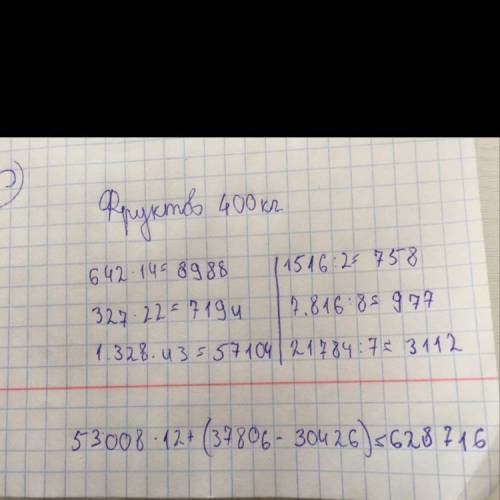 Фруктов 400кг
642·14=8988
1516:2=758
327·22=7194
7.816:8=977
1.328·43=57104
21784:7=3112
53008·12+(37806-30426)=628716